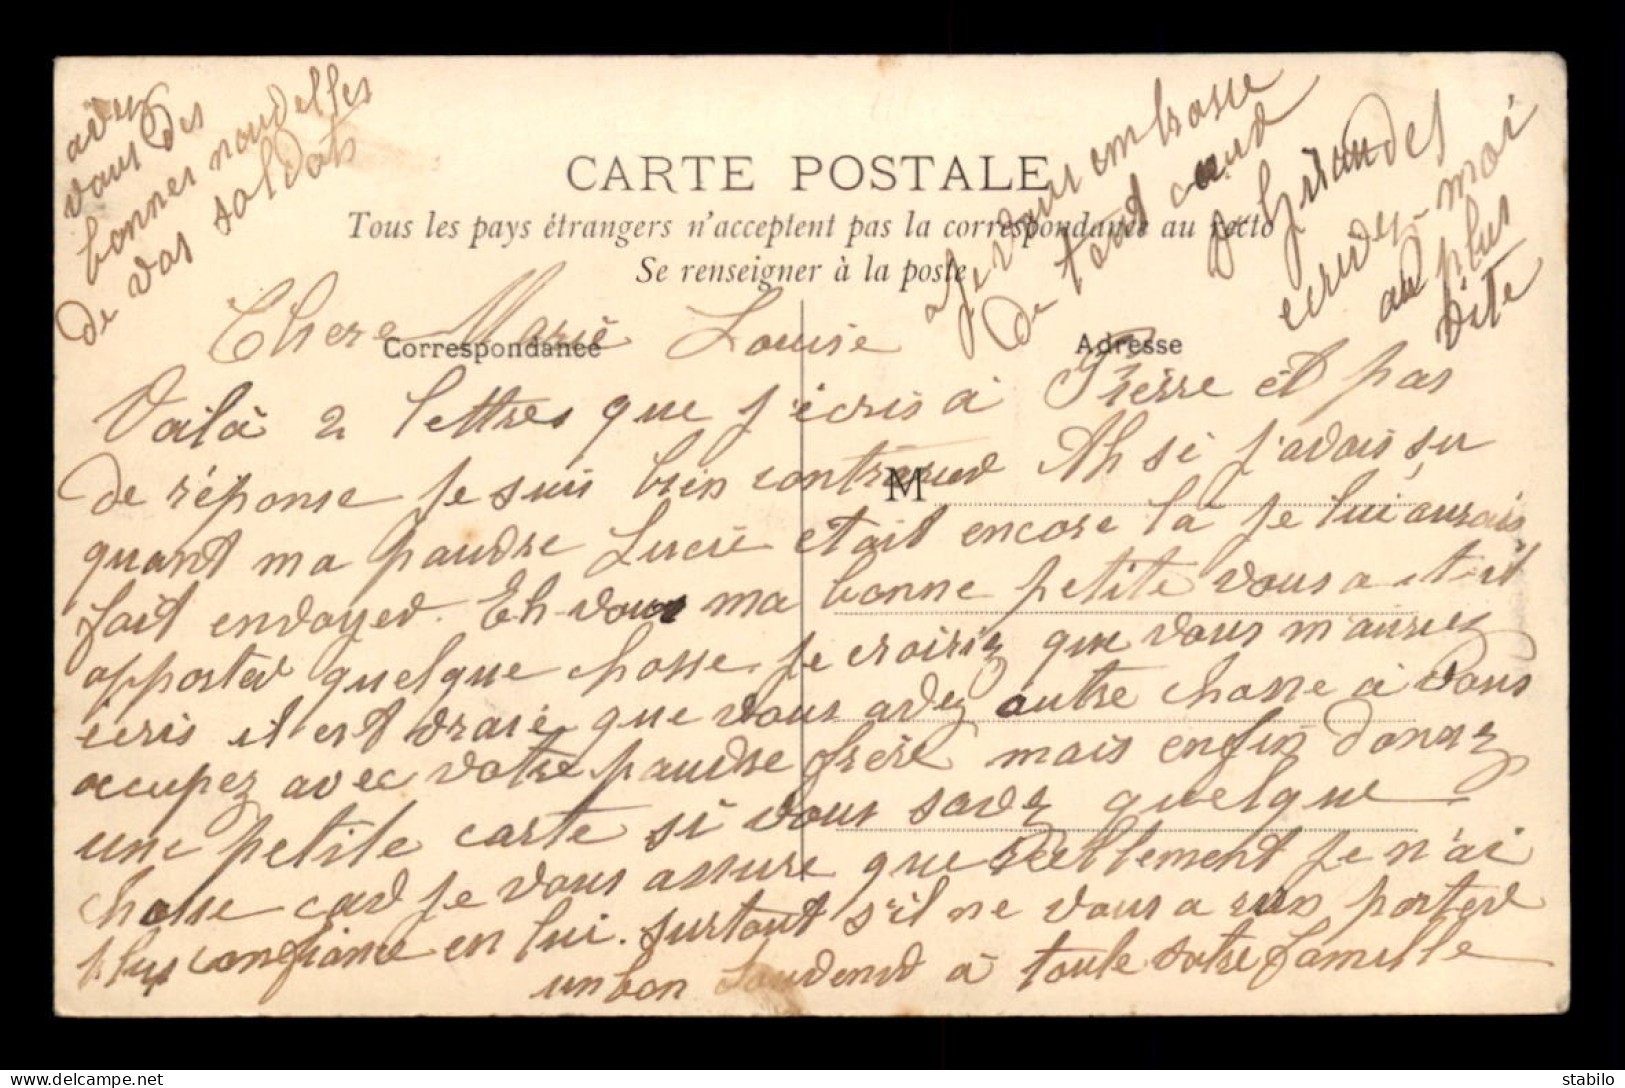 CARTE POSTALE
Tous les pays étrangers n'acceptent pas la correspondance au recto
Se renseigner à la poste
Correspondance
Adresse
M
Chere Marie Louise
Voilà 2 lettres que j'écris à Pierre et pas
de réponse je suis bien Ah si j'avais su
quant ma pauvre Lucie etait encore là je lui aurais
fait envoyer. Eh vous ma bonne petite vous a-t-il
apporter quelque chosse. je croiriez que vous m'auriez
écris il est vraie que vous avez autre chosse à vous
occupez avec votre pauvre frère mais enfin donnez
une petite carte si vous savez quelque
chosse car je vous assure que reellement je n'ai
plus confiance en lui. surtout s'il ne vous a rien porter
un bon souvenir à toute votre famille
avez
vous des
bonnes nouvelles
de vos soldats
Je vous embrasse
de tout cœur
ecrivez-moi
au plus
vite
stabilo
www.delcampe.net